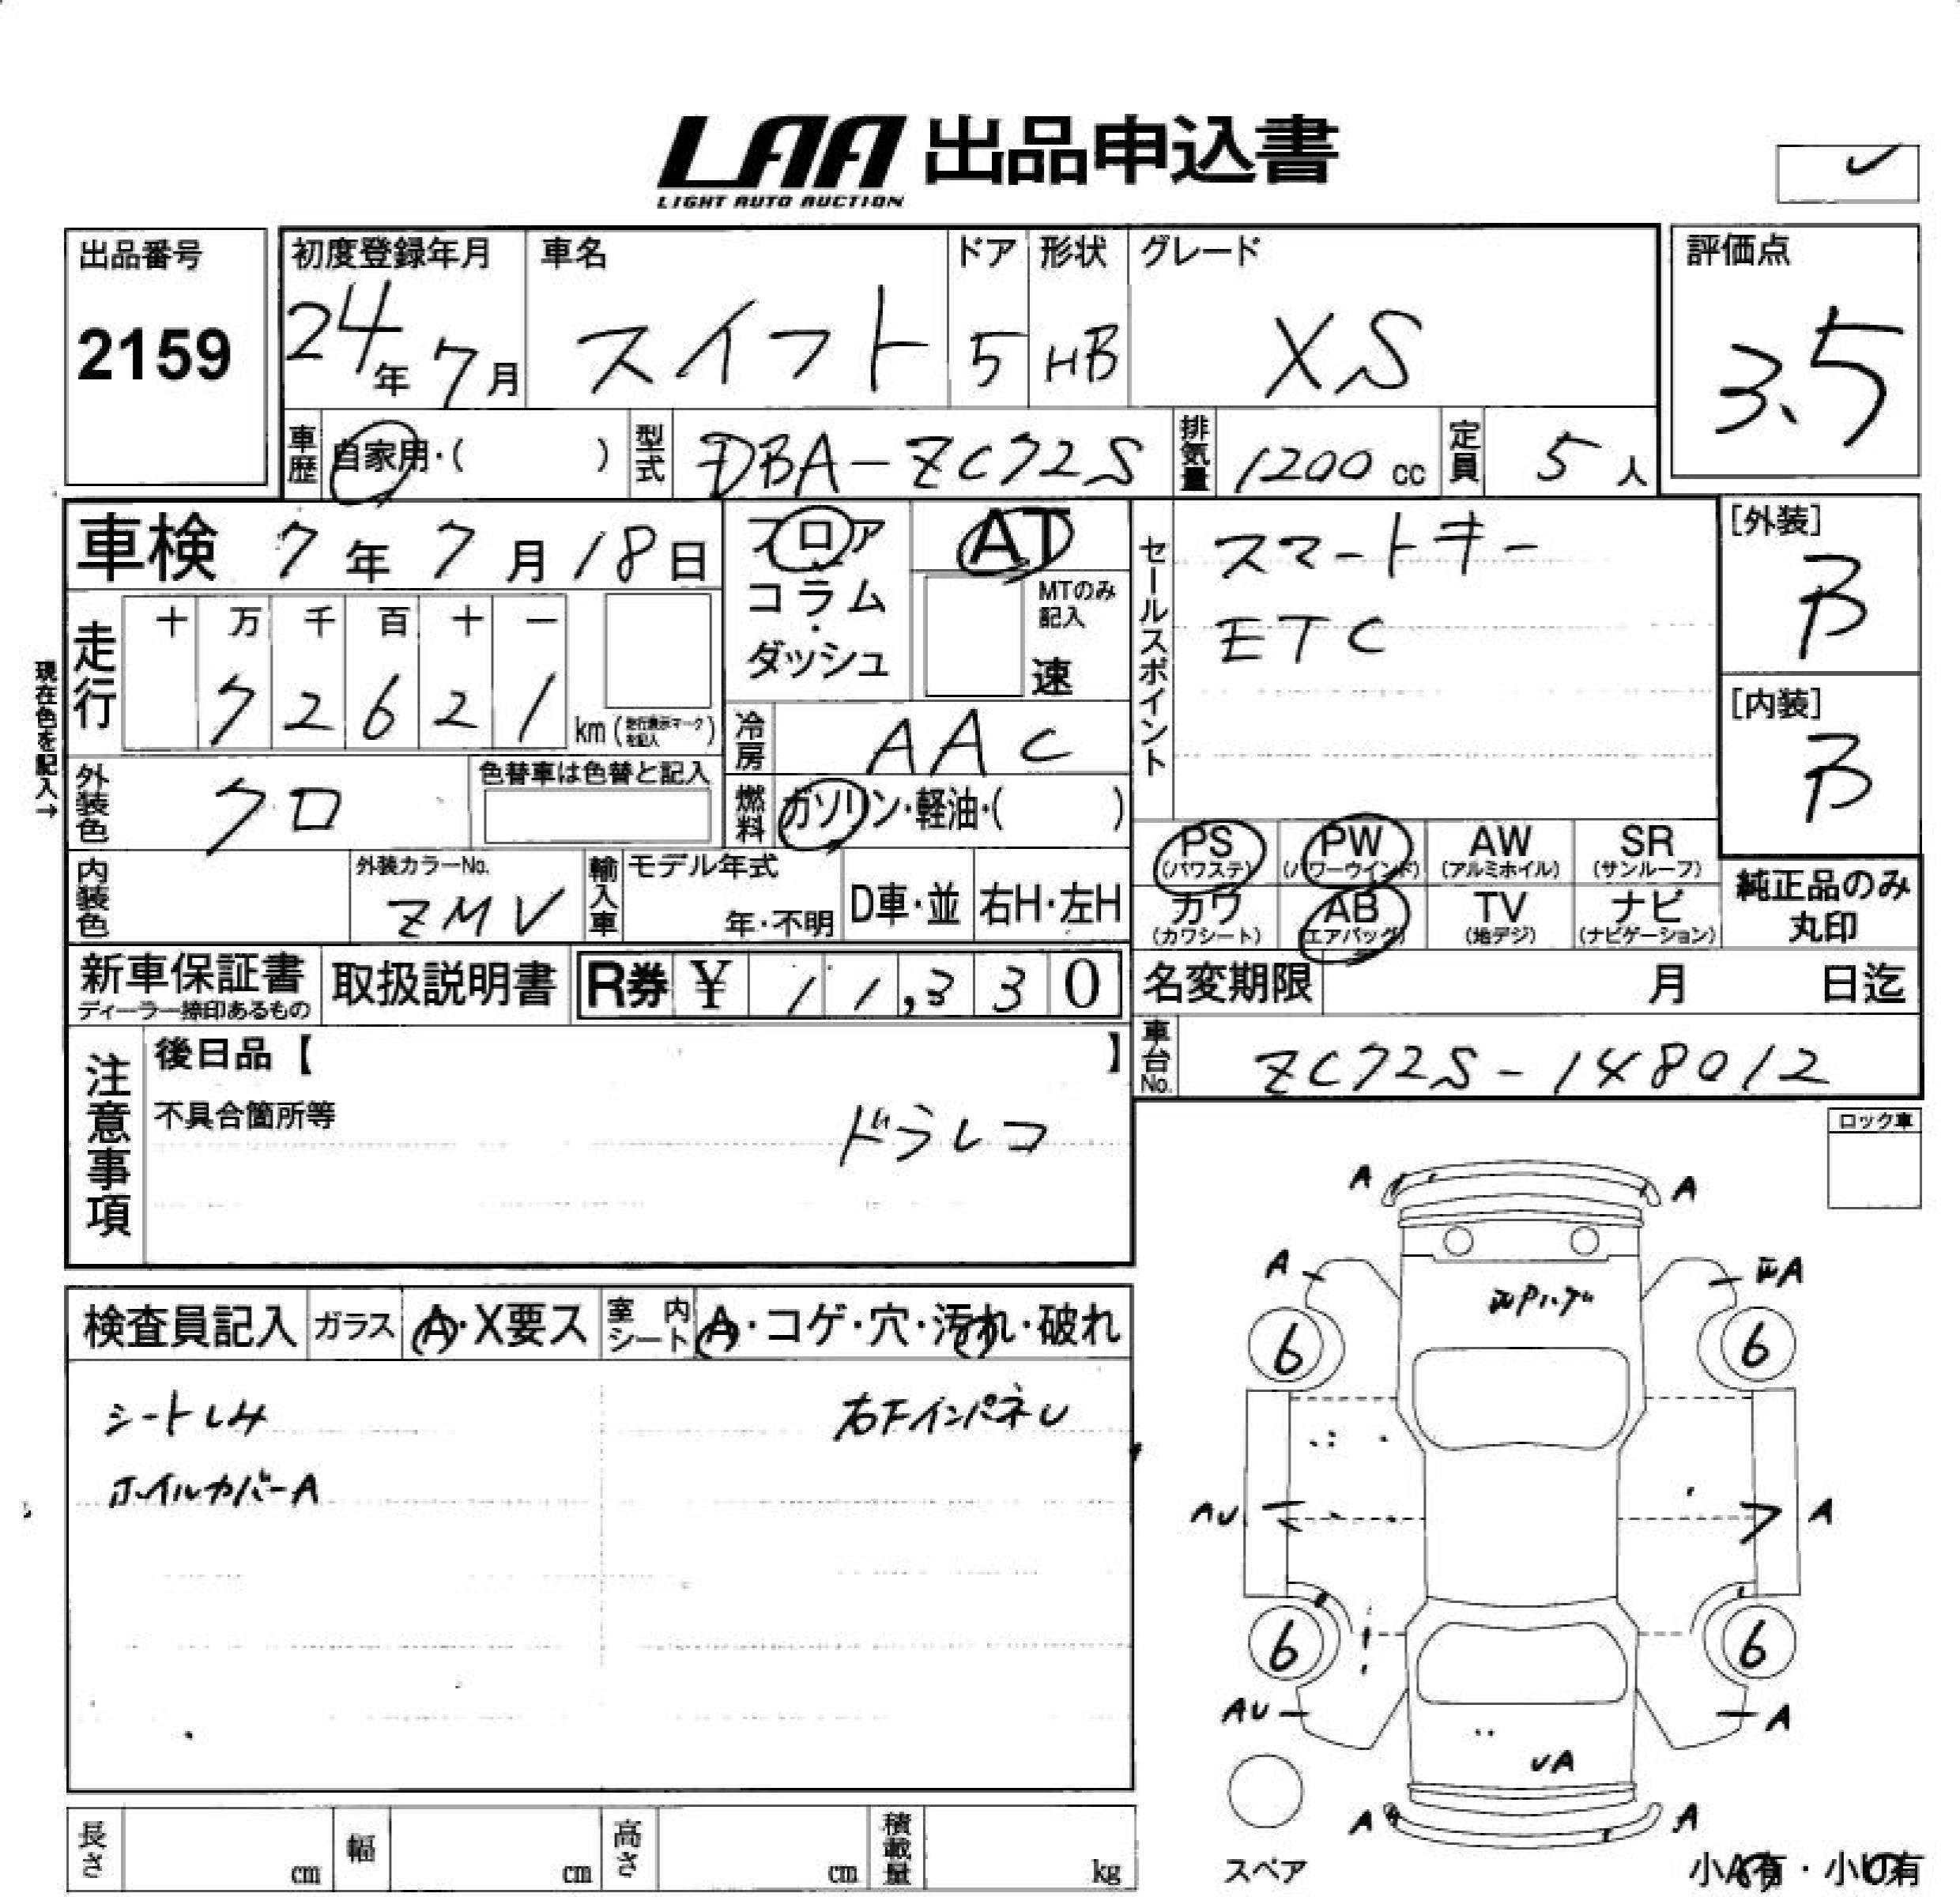 LAA 出品申込書
LIGHT AUTO AUCTION
出品番号
2159
初度登録年月
24年 7月
車名
スイフト
ドア
5
形状
HB
グレード
XS
評価点
3.5
車歴
自家用・( )
型式
DBA-ZC72S
排気量
1200 cc
定員
5 人
車検 7年 7月 18日
フロア
コラム
・
ダッシュ
AT
MTのみ
記入
速
セールスポイント
スマートキー
ETC
[外装]
B
[内装]
B
現在色を記入→
走行
十 万 千 百 十 一
7 2 6 2 1
km (走行表示マークを記入)
冷房
AAC
外装色
クロ
色替車は色替と記入
燃料
ガソリン・軽油・( )
PS
(パワステ)
PW
(パワーウインド)
AW
(アルミホイル)
SR
(サンルーフ)
カワ
(カワシート)
AB
(エアバッグ)
TV
(地デジ)
ナビ
(ナビゲーション)
純正品のみ
丸印
内装色
外装カラーNo.
ZMV
輸入車
モデル年式
年・不明
D車・並
右H・左H
新車保証書
ディーラー捺印あるもの
取扱説明書
R券 ¥ 11,330
名変期限 月 日迄
車台No.
ZC72S-148012
注意事項
後日品【 】
不具合箇所等
ドラレコ
ロック車
検査員記入
ガラス
A・X要ス
室内シート
A・コゲ・穴・汚れ・破れ
シートシミ
右下インパネU
ホイルカバーA
A
A
A
A
6
6
AU
A
6
6
AU
A
UA
A
A
スペア
小A有・小U有
長さ cm
幅 cm
高さ cm
積載量 kg